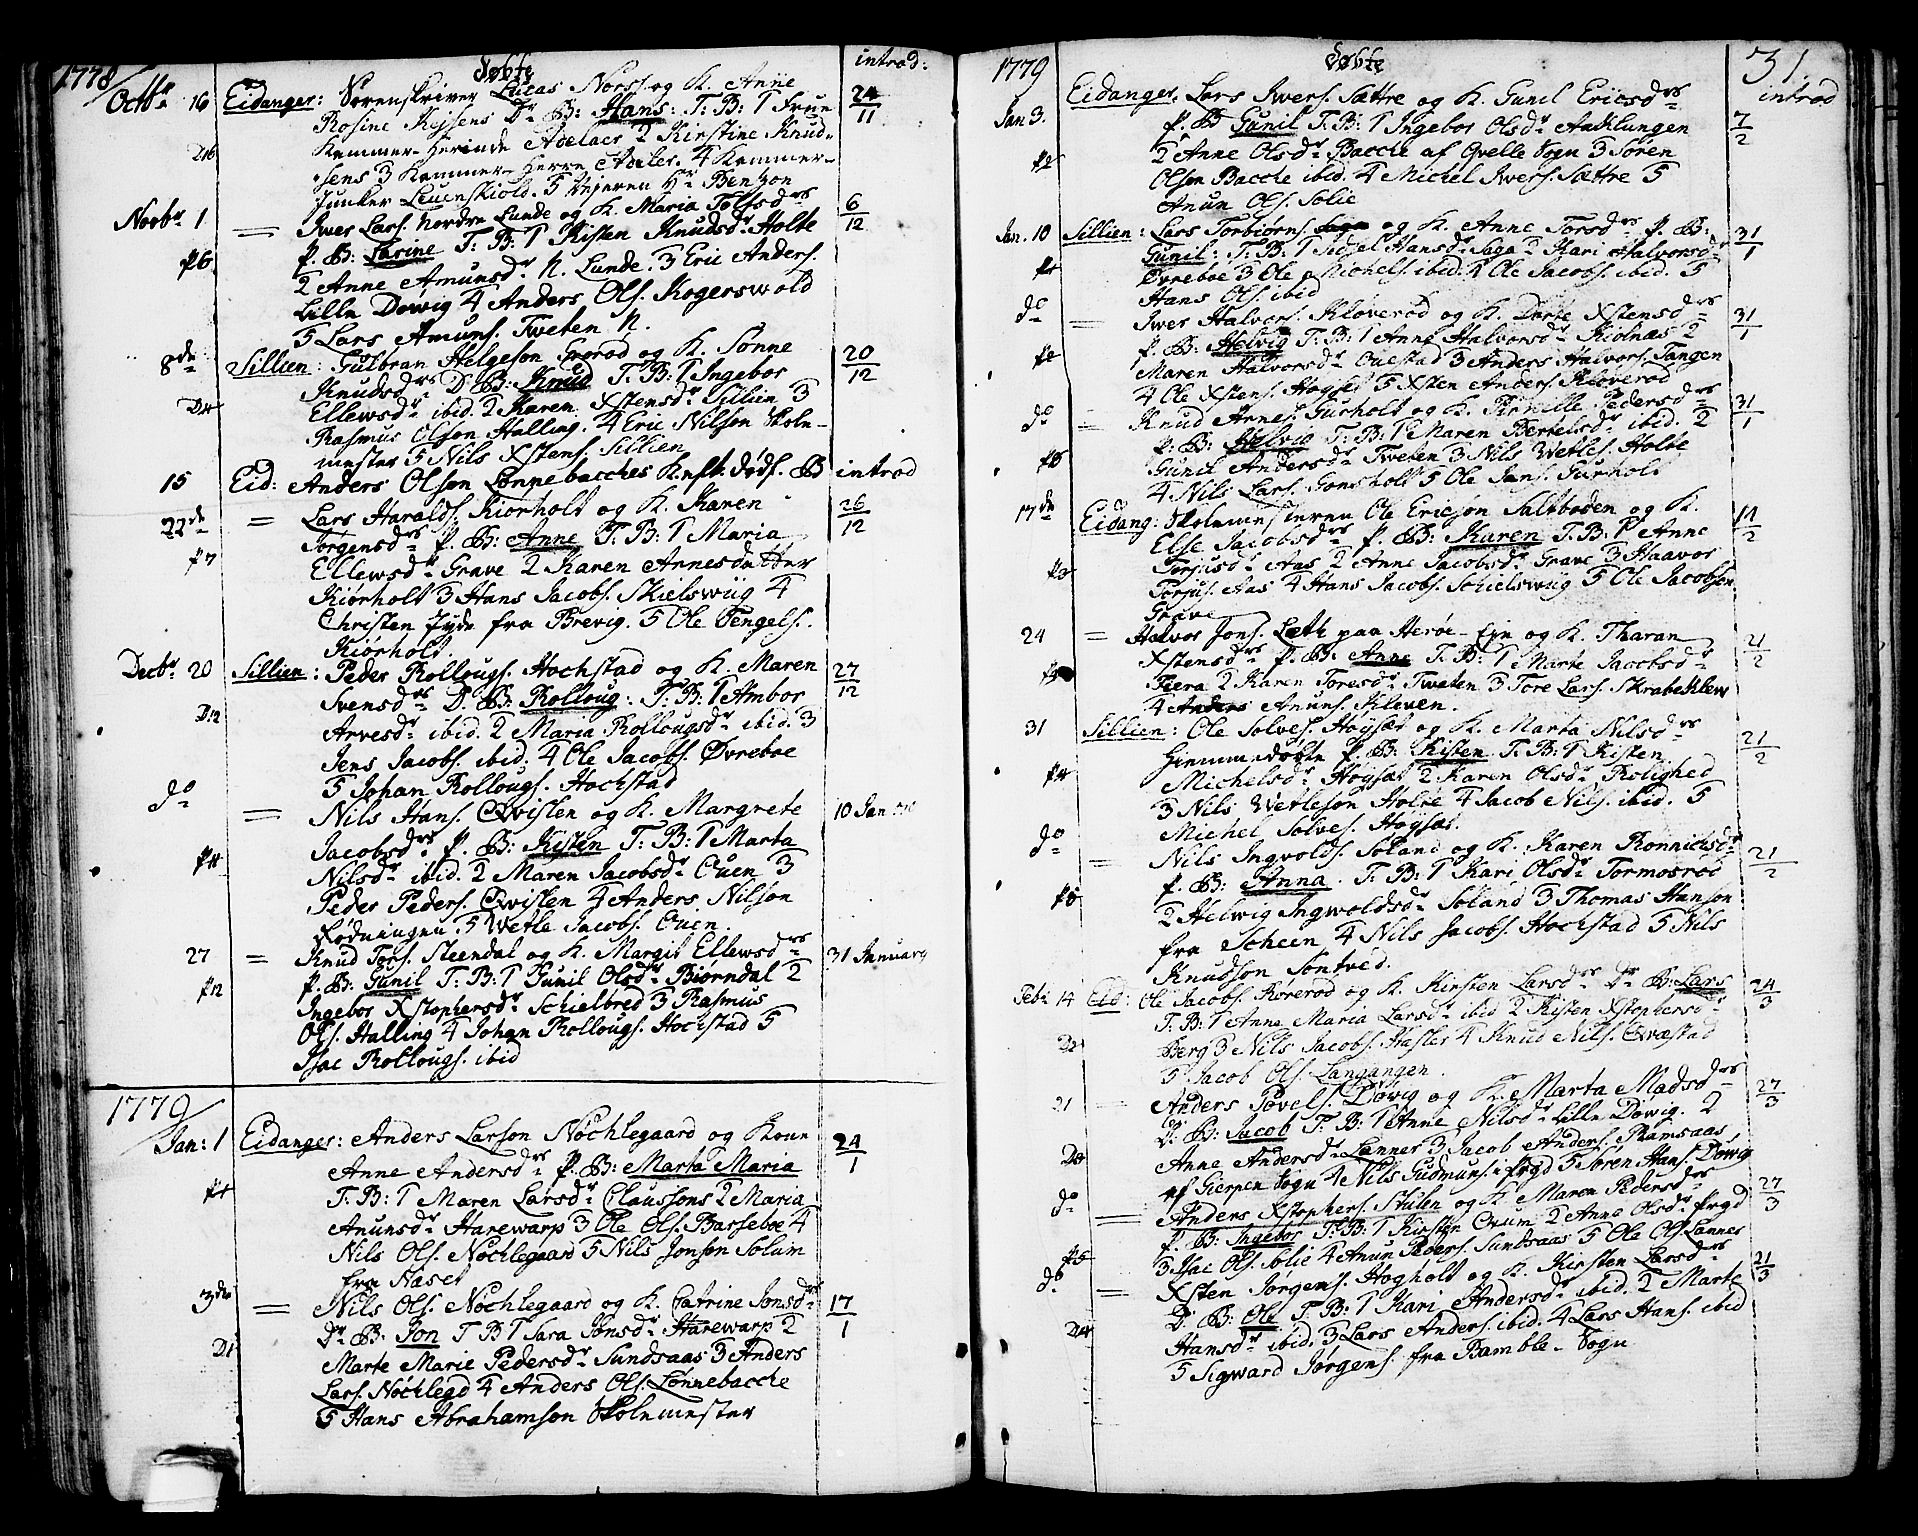 1778 Døbte introd:
Octbr 16 Eidanger: Sorenskriver Lucas Nors. og K. Anne 24/11
Rosine Dr B: Hans. T. B: 1 Frue
D16 Kammer-Herinde Adelaer 2 Kirstine Knud-
sens 3 Kammer-Herre Adeler. 4 Kammer-
Junker Leuenskiold. 5 Hr Bentzon
Novbr 1 = Iver Lars. Nordre Lunde og K. Maria Tolfsdr 6/12
P6 P. B: Larine T: B: 1 Kisten Knudsdr Holte
2 Anne Amunsdr N. Lunde. 3 Eric Anders.
Lille Døwig 4 Anders Ols. Rogerswold
5 Lars Amuns. Tweten N.
8de Sillien: Gulbran Helgeson og K. Sønne 20/12
Knudsdr D. B: Knud T: B: 1 Ingebor
D11 Ellewsdr ibid. 2 Karen Xstensdr Sillien 3
Rasmus Olsen Halling. 4 Eric Nilson Skole-
mester 5 Nils Xstens. Sillien
15 Eid: Anders Olsøn Lønnebacches K. nft: dødf. B introd
22de = Lars Haralds. Kiørholt og K. Karen 26/12
Jørgensdr P. B: Anne T: B: 1 Maria
P7 Ellewsdr Grave 2 Karen Arnesdr Her
Kiørholt 3 Hans Jacobs. Skielswiig 4
Christen Jyde fra Brevig. 5 Ole Tengels.
Kiørholt.
Decbr 20 Sillien: Peder Rollougs. Hochstad og K. Maren 27/12
Svensdr D. B: Rolloug. T: B: 1 Ambor
D12 Arvesdr ibid. 2 Maria Rollougsdr ibid. 3
Jens Jacobs. ibid. 4 Ole Jacobs. Øvreboe
5 Johan Rollougs. Hochstad
do = Nils Hans. Qvisten og K. Margrete 10 Jan
Jacobsdr P. B: Kisten T: B: 1 Marta
P11 Nilsdr ibid. 2 Maren Jacobsdr Ouen 3
Peder Peders. Qvisten 4 Anders Nilsøn
Rødningen 5 Wetle Jacobs. Ouen.
27 = Knud Tors. Steendal og K. Margit Ellewsdr 31 Januarij
P12 P. B: Gunil T: B: 1 Gunil Olsdr Biørndal 2
Ingebor Xstophersdr Schielbred 3 Rasmus
Ols. Halling 4 Johan Rollougs. Hochstad 5
Isac Rollougs. ibid
1779
Jan: 1 Eidanger: Anders Larsøn Nochlegaard og Kone 24/1
Anne Andersdr P. B: Marta Maria
P1 T: B: 1 Maren Larsdr Claussøns 2 Maria
Anunsdr Harewarp 3 Ole Ols. Barseboe 4
Nils Ols. Nochlegaard 5 Nils Jonsøn Solum
fra Næset
3die = Nils Ols. Nochlegaard og K. Catrine Jonsdr 17/1
Dr B: Jon T B 1 Sara Jonsdr Harewarp 2
D1 Marte Marie Pedersdr Sundsaas 3 Anders
Lars. Nochlegd 4 Anders Ols. Lønnebacche
5 Hans Abrahamsøn Skolemester
1779 Døbte 31.
introd
Jan 3. Eidanger. Lars Iwers. Sættre og K. Gunil Ericsdr 7/2
P. B Gunil T: B: 1 Ingebor Olsdr Aaklungen
P2 2 Anne Olsdr Bacche af Qvelle Sogn 3 Søren
Olsøn Bacche ibid. 4 Michel Iwers. Sættre 5
Anun Ols. Solie
Jan. 10 Sillien: Lars Torbiørns. og K. Anne Torsdr P. B: 31/1
Gunil: T: B: 1 Hansdr Saga 2 Kari Halvorsdr
P1 Øvreboe 3 Ole Michels. ibid. 4 Ole Jacobs. ibid. 5
Hans Ols. ibid
do = Iwer Halvors. Kløverød og K. Dorte Xstensdr 31/1
P2 P. B: Helvig T: B: 1 Anne Halvorsdr Kiønaas 2
Maren Halvorsdr Ouestad 3 Anders Halvors. Tangen
4 Ole Xstens. Høgset 5 Xsten Anders. Kløverød
do = Knud Arnes. Gurholt og K. Pernille Pedersdr 31/1
P. B: Helvig T: B: 1 Maren Bertelsdr ibid. 2
P3 Gunil Andersdr Tweten 3 Nils Wetles. Holte
4 Nils Lars. Gonsholt 5 Ole Jans. Gurholt
17de Eidang: Skolemesteren Ole Ericsøn Saltboden og K. 14/2
Else Jacobsdr P. B: Karen T: B: 1 Anne
P3 Torjusdr Aas 2 Anne Jacobsdr Grave 3 Haavor
Torjus. Aas 4 Hans Jacobs. Schielswiig 5 Ole Jacobsøn
Grave
24 = Halvor Jons. Læth paa Herøe-Ejn og K. Tharan 21/2
Xstensdr P. B: Anne T: B: 1 Marte Jacobsdr
Fiera 2 Karen Toresdr Tweten 3 Tore Lars. Skrabeklew
4 Anders Anuns. Kleven.
31 Sillien: Ole Solves. Høgset og K. Marta Nilsdr 21/2
Hiemmedøbte P. B: Kisten T: B: 1 Kisten
P4 Michelsdr Høgset 2 Karen Olsdr Rolighed
3 Nils Wetlesøn Holte 4 Jacob Nils. ibid. 5
Michel Solves. Høgset.
do = Nils Ingvolds. Soland og K. Karen Rønnichsdr 21/2
P. B: Anna. T: B: 1 Kari Olsdr Tormosrød
P5 2 Helwig Ingwoldsdr Soland 3 Thomas Hansøn
fra Scheen 4 Nils Jacobs. Hochstad 5 Nils
Knudsøn Søntved.
Febr 14 Eid: Ole Jacobs. Rørerød og K. Kirsten Larsdr Dr B: Lars 24/3
T: B: 1 Anne Maria Larsdr ibid 2 Kisten Xstophersdr
D2 Berg 3 Nils Jacobs. Hasler 4 Knud Nils. Qvæstad
5 Jacob Ols. Langangen.
21 = Anders Povels. Døwig og K. Marta Madsdr 27/3
D. B: Jacob T: B: 1 Anne Nilsdr Lille Døwig. 2
D3 Anne Andersdr Lanner 3 Jacob Anders. Ramsaas
af Gierpen Sogn 4 Nils Gudmuns. frgd 5 Søren Hans. Døwig
do = Anders Xstophers. Stulen og K. Maren Pedersdr 27/3
P. B: Ingebor T: B: 1 Kirsten Qvum 2 Anne Olsdr frgd
P5 3 Isac Ols. Solie 4 Anun Peders. Sundsaas 5 Ole Ols. Lannes
do = Xsten Jørgens. Høgholt og K. Kirsten Larsdr 21/3
D. B: Ole T: B: 1 Kari Andersdr ibid. 2 Marte
D4 Hansdr ibid. 3 Lars Anders. ibid. 4 Lars Hans. ibid
5 Sigward Jørgens. fra Bamble-Sogn